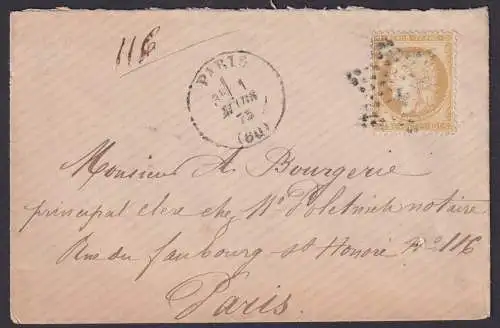 116
PARIS
1
MARS
75
(60)
Monsieur A Bourgerie
principal clerc chez Me notaire
Rue du faubourg st Honoré No 116
Paris.